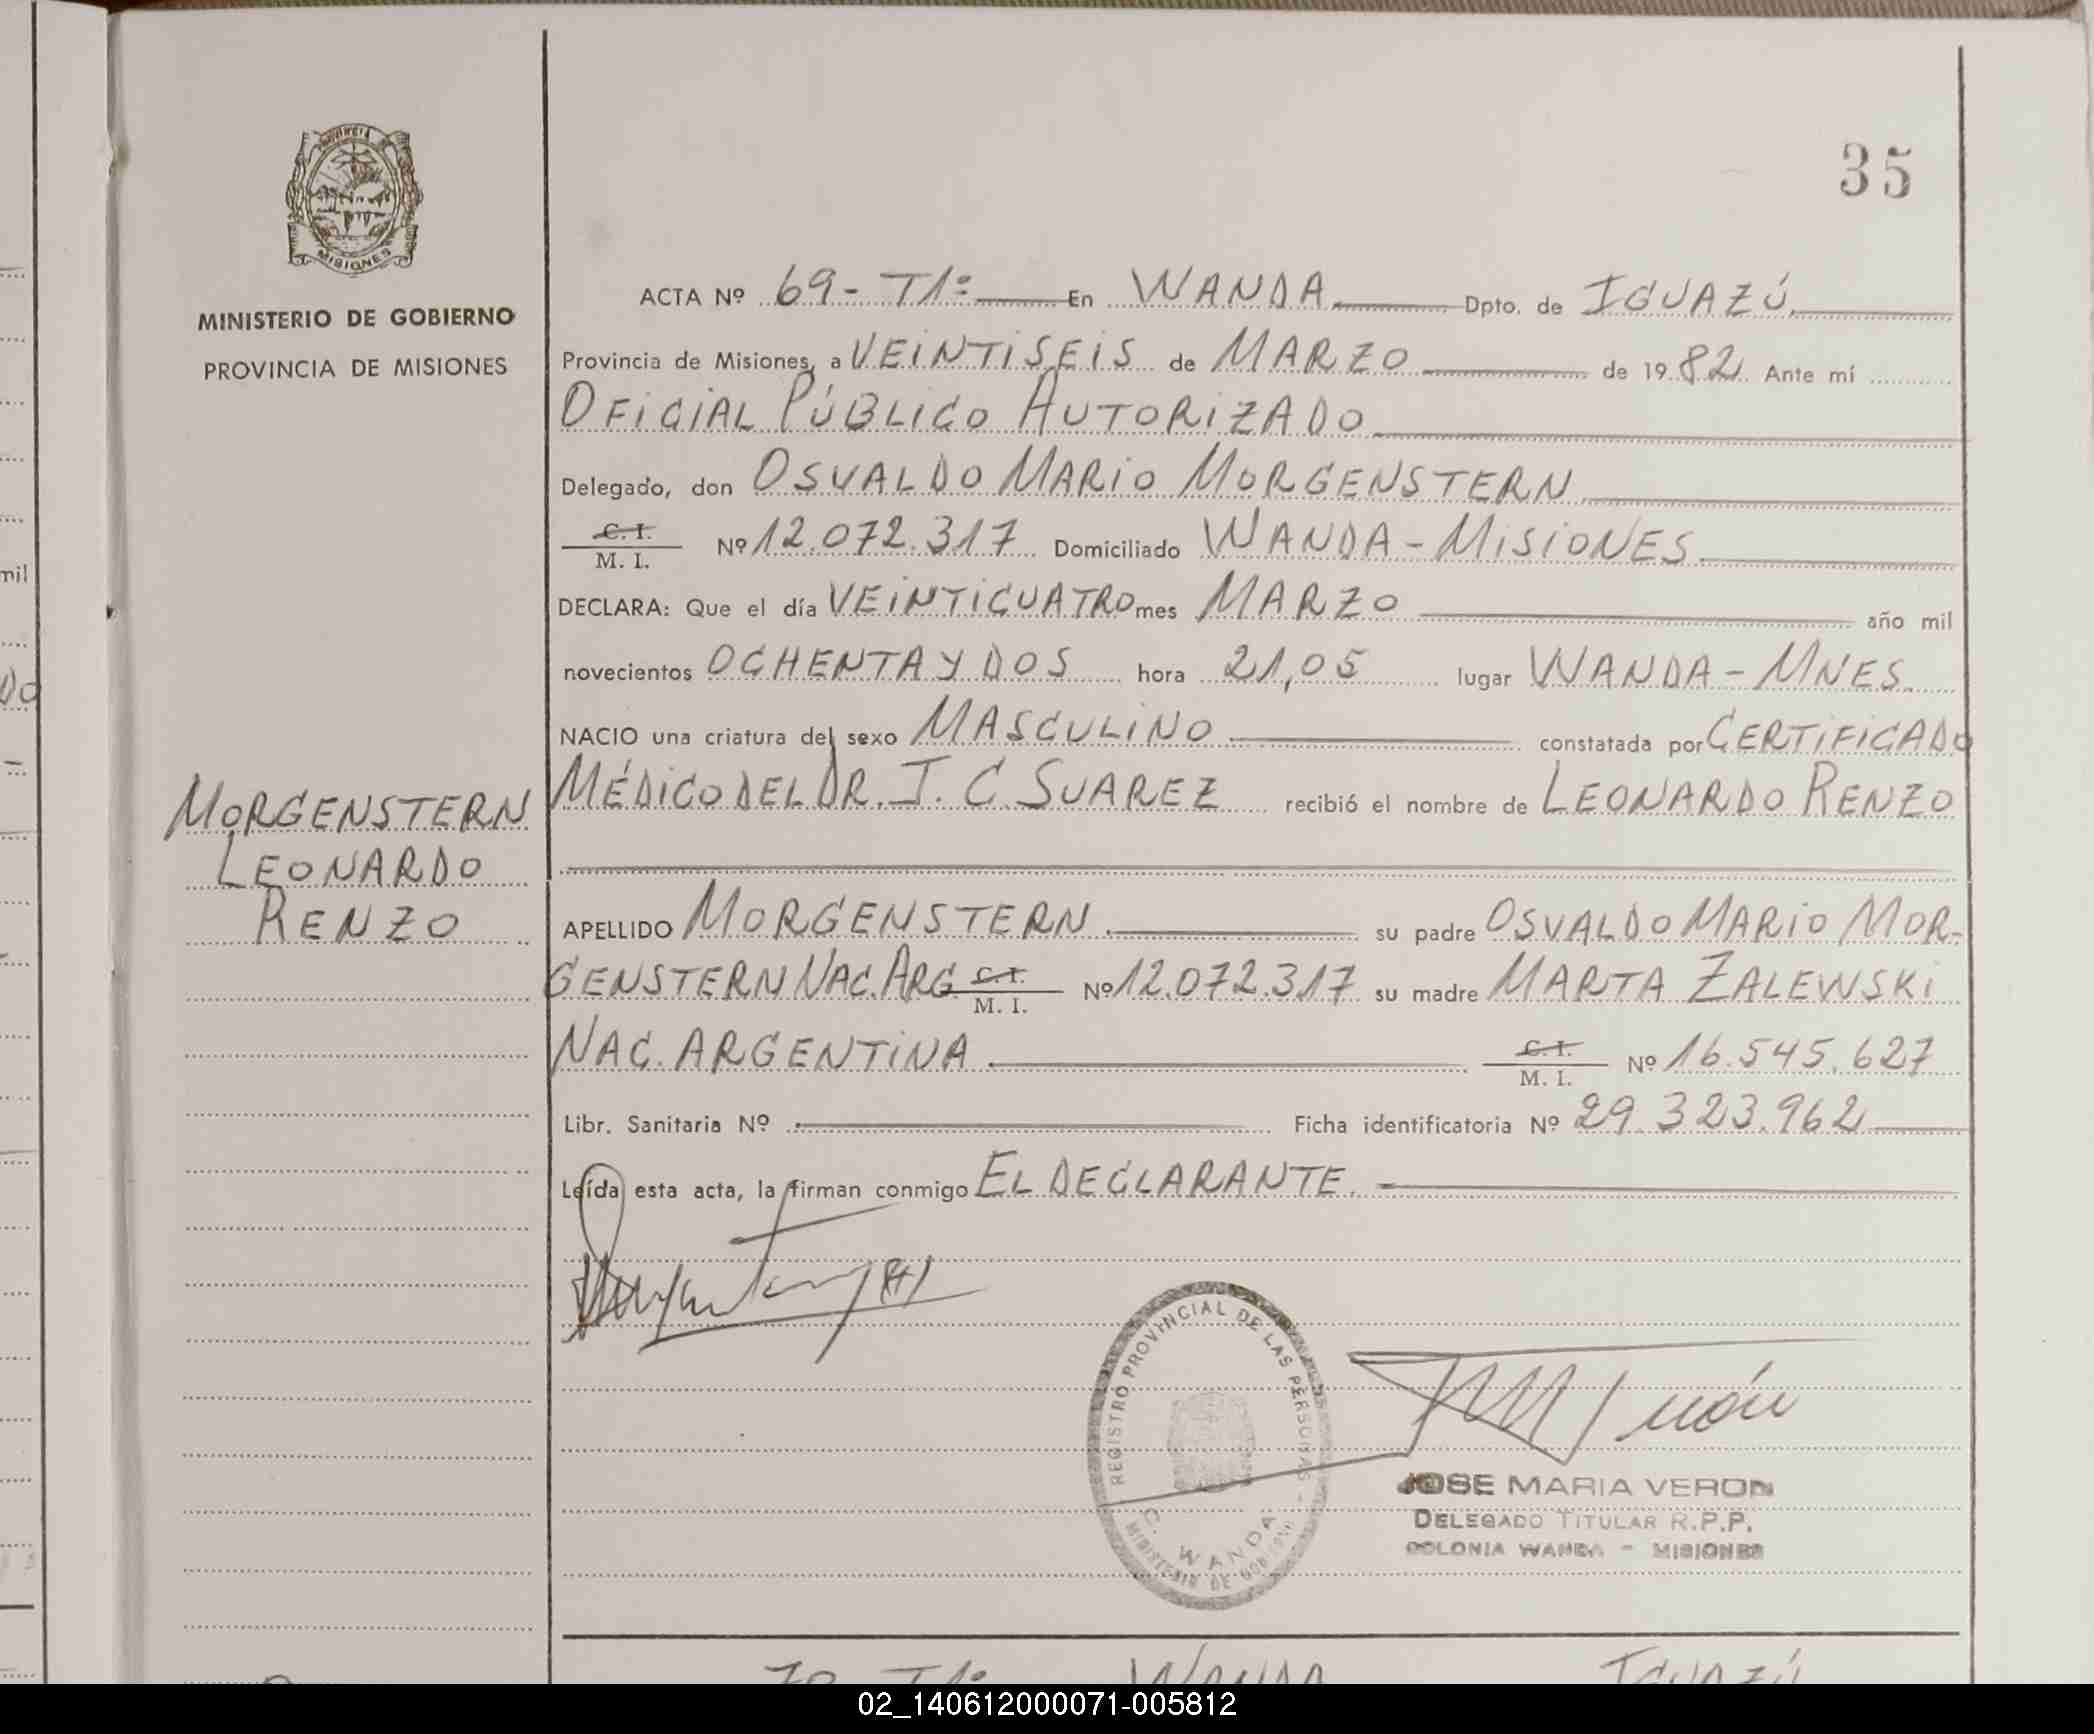 35
PROVINCIA
MISIONES
MINISTERIO DE GOBIERNO
PROVINCIA DE MISIONES
ACTA Nº 69 - T1º En WANDA Dpto. de IGUAZÚ
Provincia de Misiones, a VEINTISEIS de MARZO de 1982 Ante mí
OFICIAL PÚBLICO AUTORIZADO
Delegado, don OSVALDO MARIO MORGENSTERN
C. I.
M. I. Nº 12.072.317 Domiciliado WANDA - MISIONES
DECLARA: Que el día VEINTICUATRO mes MARZO año mil
novecientos OCHENTA Y DOS hora 21,05 lugar WANDA - MNES.
NACIO una criatura del sexo MASCULINO constatada por CERTIFICADO
MÉDICO DEL DR. J. C. SUAREZ recibió el nombre de LEONARDO RENZO
MORGENSTERN
LEONARDO
RENZO
APELLIDO MORGENSTERN su padre OSVALDO MARIO MOR-
GENSTERN NAC. ARG. C. I.
M. I. Nº 12.072.317 su madre MARTA ZALEWSKI
NAC. ARGENTINA C. I.
M. I. Nº 16.545.627
Libr. Sanitaria Nº Ficha identificatoria Nº 29.323.962
Leída esta acta, la firman conmigo EL DECLARANTE.
REGISTRO PROVINCIAL DE LAS PERSONAS
C. WANDA
MINISTERIO DE GOBIERNO
JOSE MARIA VERON
DELEGADO TITULAR R.P.P.
COLONIA WANDA - MISIONES
70 - T1º WANDA IGUAZÚ
02_140612000071-005812